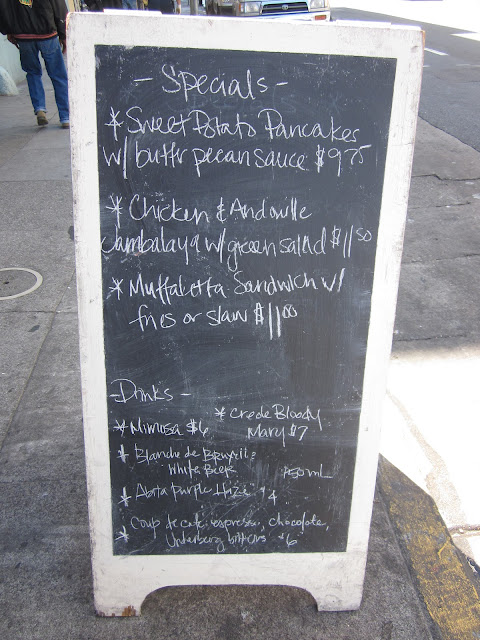 - Specials -
* Sweet Potato Pancakes
w/ butter pecan sauce $9.75
* Chicken & Andouille
Jambalaya w/ green salad $11.50
* Muffaletta Sandwich w/
fries or slaw $11.00
- Drinks -
* Mimosa $6
* Creole Bloody
Mary $7
* Blanche de Bruxelles
White Beer 750 mL
* Abita Purple Haze $4
* Coup de cafe: espresso, chocolate,
Underberg bitters $6